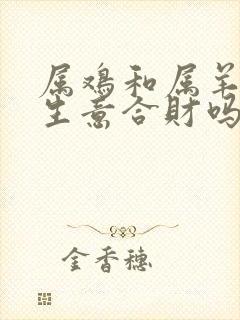 属鸡和属羊
生意合財吗
金香穗